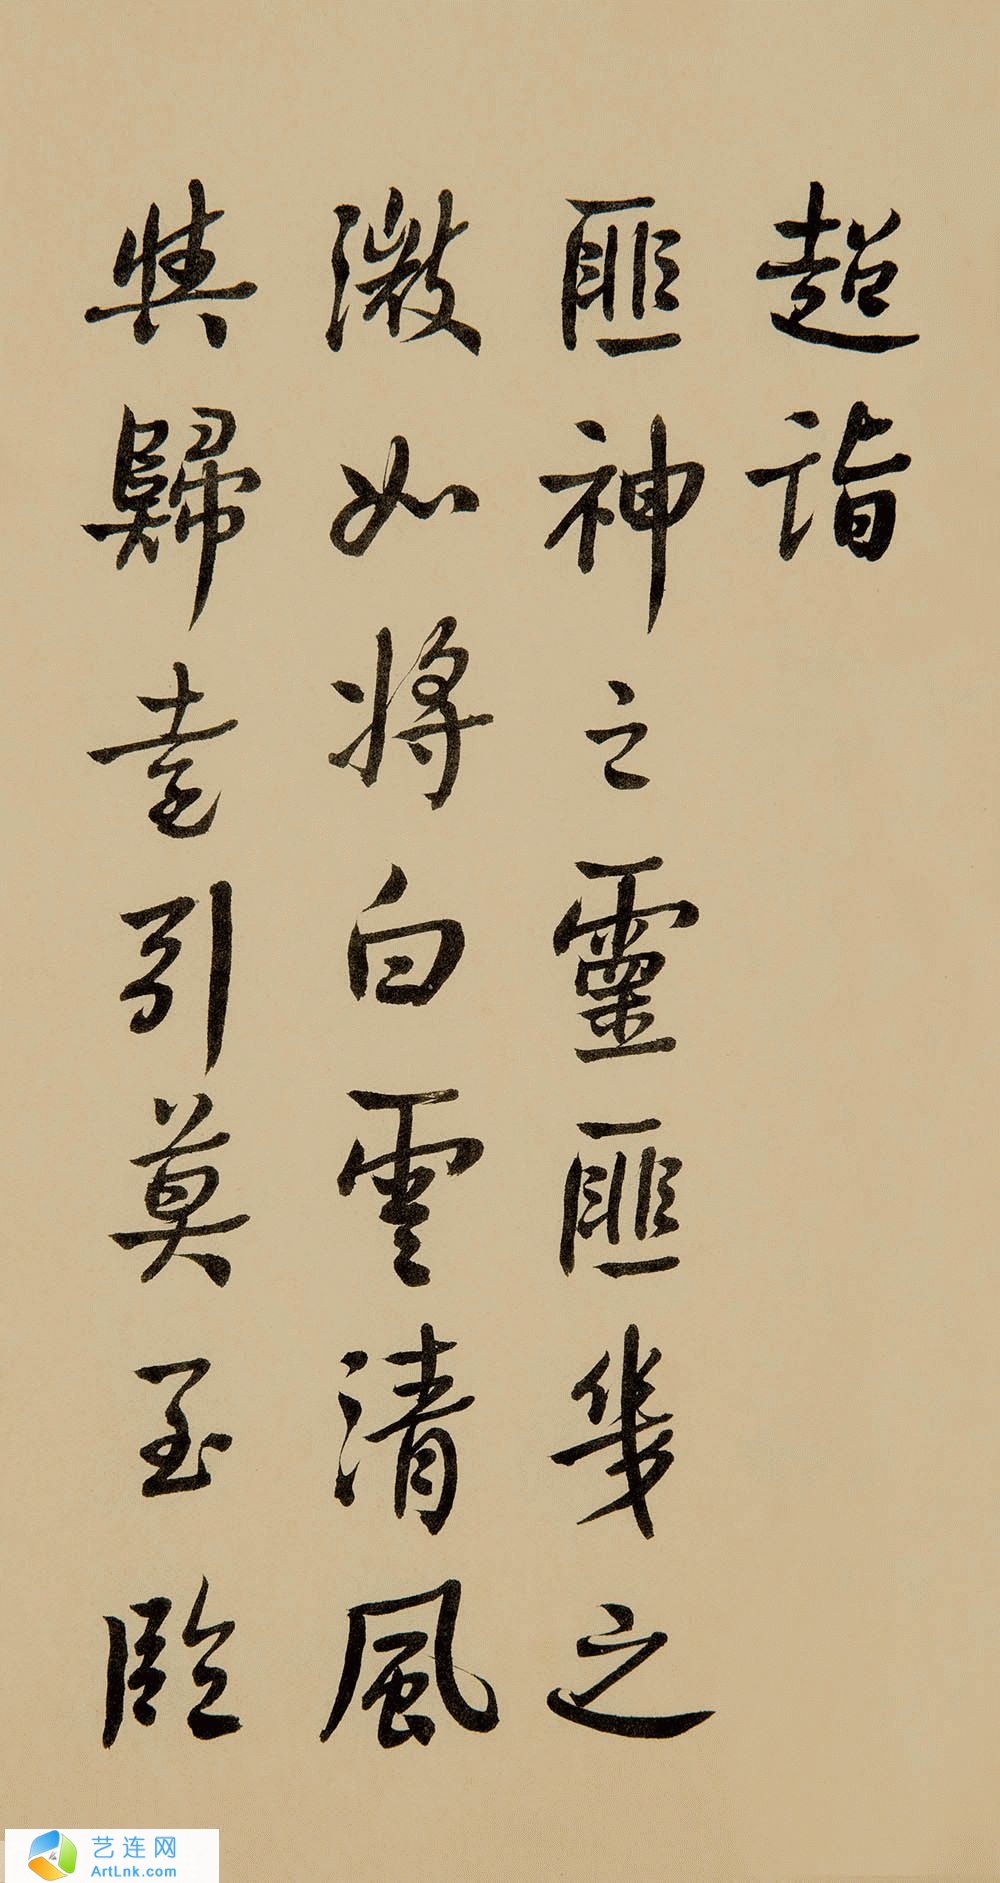 超詣
匪神之靈匪幾之
微如將白雲清風
與歸遠引莫至臨
艺连网
ArtLnk.com